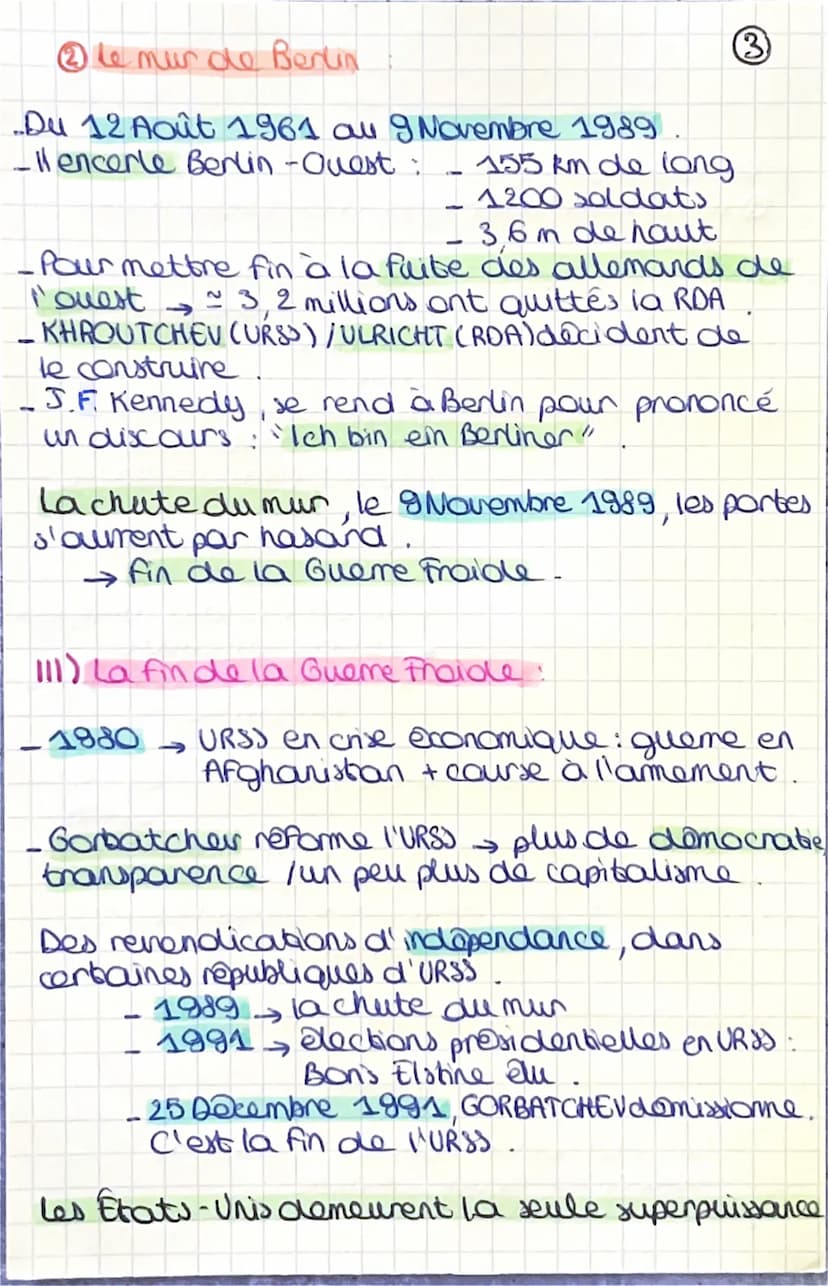 ③
② Le mur de Berlin :
- Du 12 Août 1961 au 9 Novembre 1989.
- Il encercle Berlin-Ouest : - 155 km de long
- 1200 soldats
- 3,6 m de haut
- Pour mettre fin à la fuite des allemands de
l'ouest → ≃ 3,2 millions ont quittés la RDA.
- KHROUTCHEV (URSS) / ULRICHT (RDA) décident de
le construire.
- J.F. Kennedy, se rend à Berlin pour prononcé
un discours : "Ich bin ein Berliner".
La chute du mur, le 9 Novembre 1989, les portes
s'ouvrent par hasard.
→ fin de la Guerre Froide.
III) La fin de la Guerre Froide :
- 1980 → URSS en crise économique : guerre en
Afghanistan + course à l'armement.
- Gorbatchev réforme l'URSS → plus de démocratie,
transparence / un peu plus de capitalisme.
Des revendications d'indépendance, dans
certaines républiques d'URSS.
- 1989 → la chute du mur
- 1991 → élections présidentielles en URSS :
Boris Elstine élu.
- 25 Décembre 1991, GORBATCHEV démissionne.
C'est la fin de l'URSS.
Les États-Unis demeurent la seule superpuissance